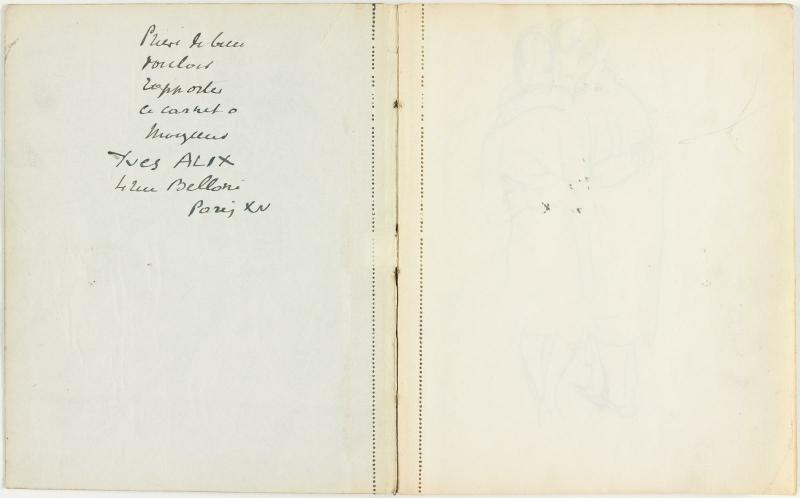 Prière de bien
vouloir
rapporter
ce carnet a
Monsieur
Yves ALIX
4 rue Belloni
Paris XV